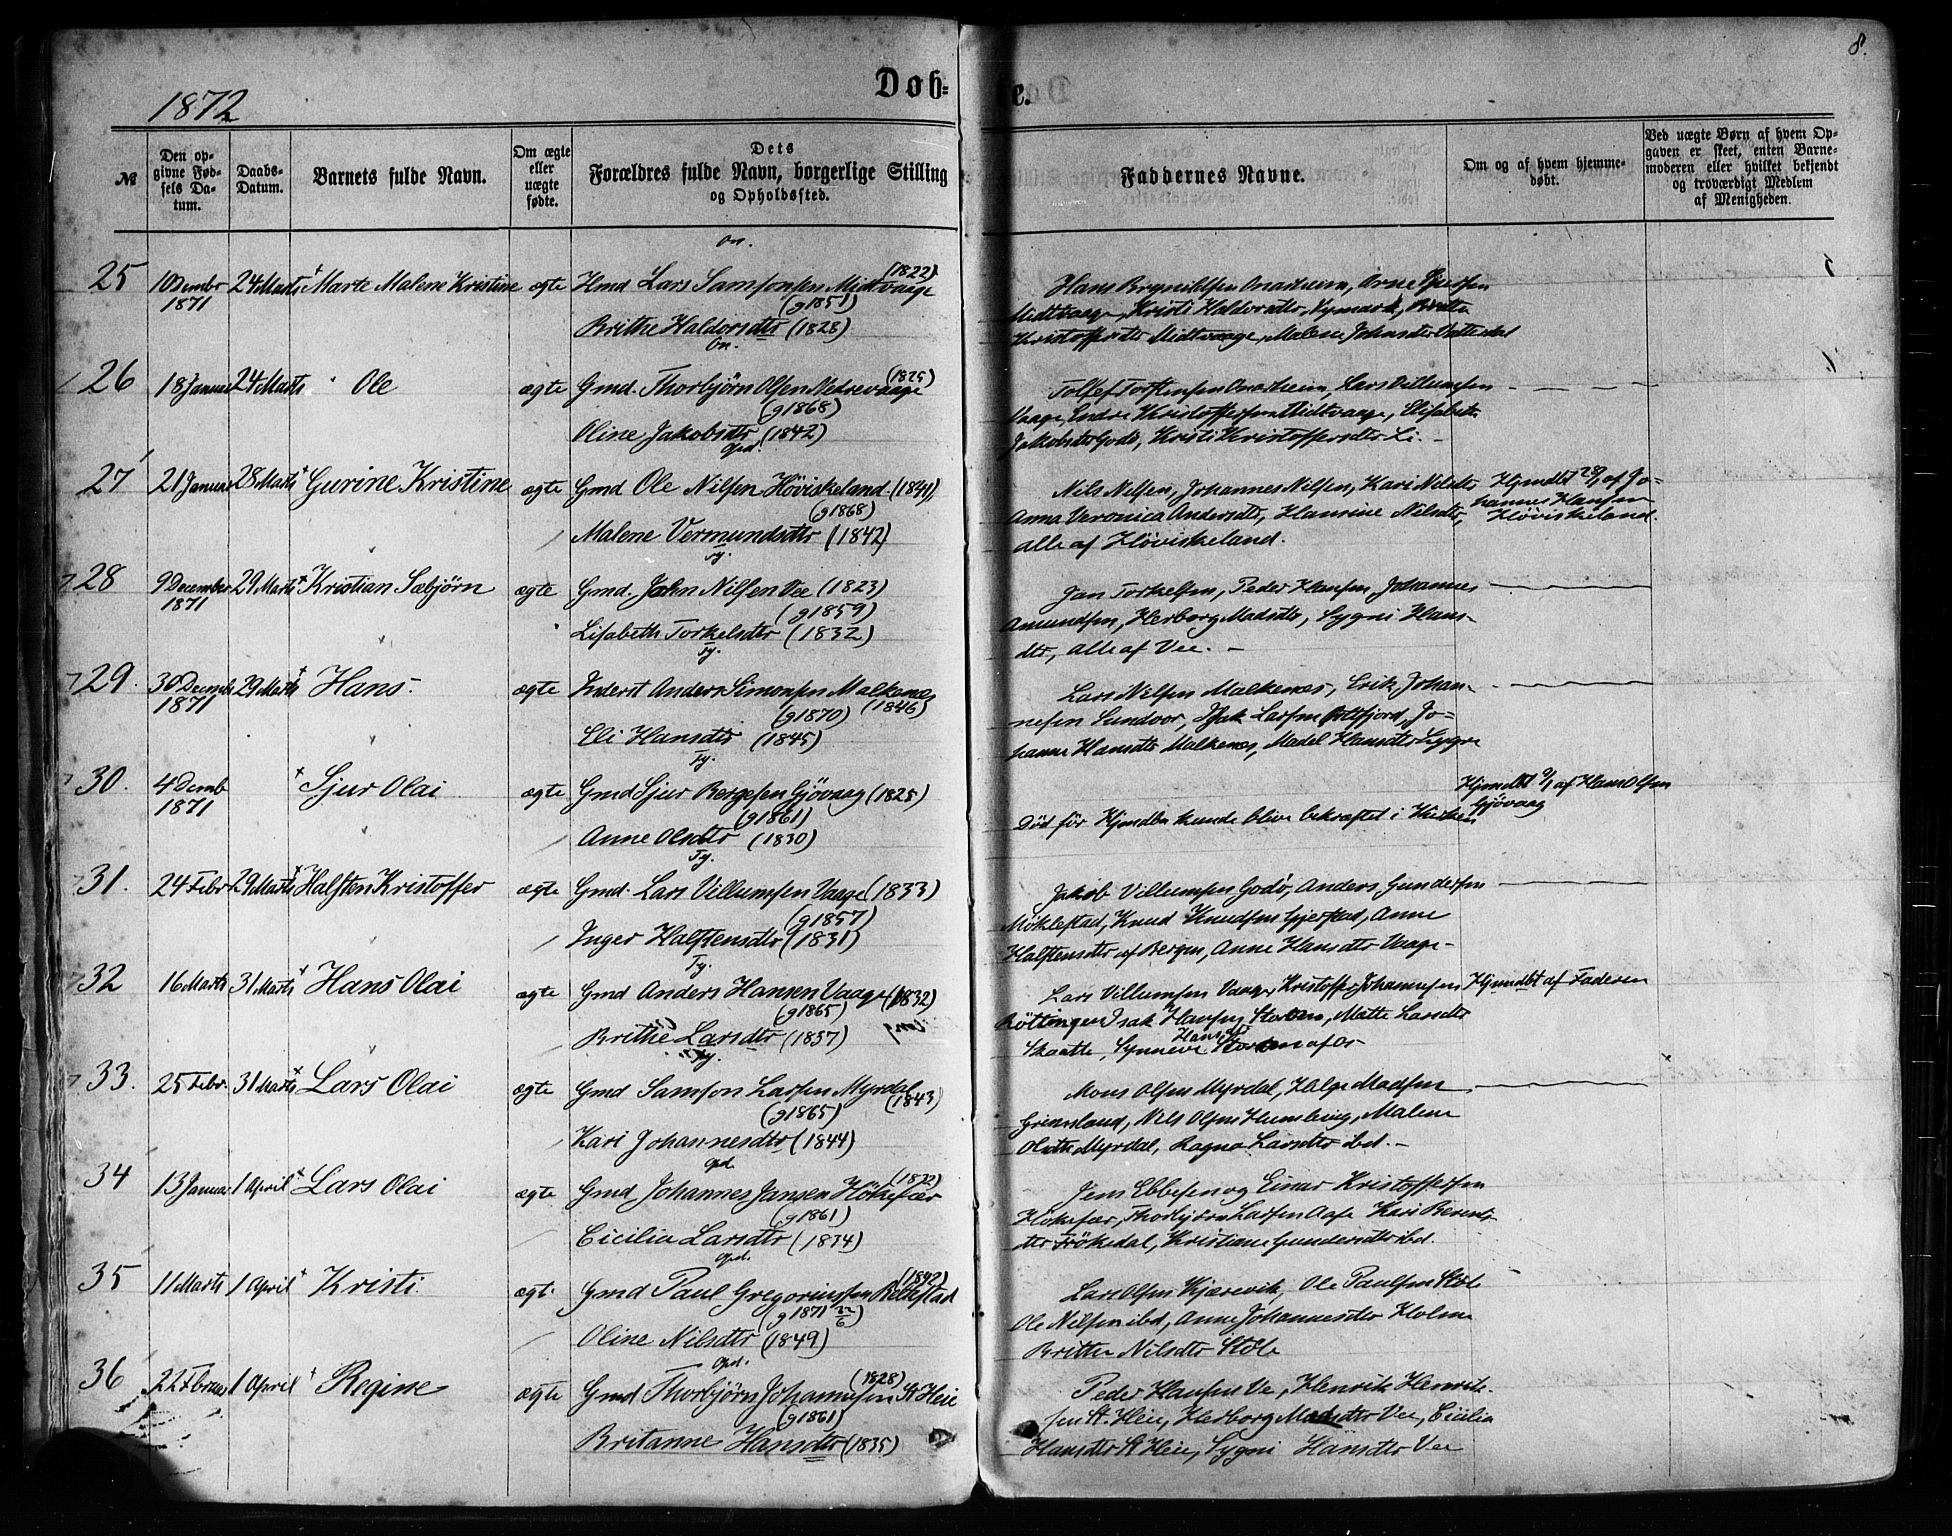 8.
1872
Døb-
te.
№
Den op-
givne Fød-
sels Da-
tum.
Daabs-
Datum.
Barnets fulde Navn.
Om ægte
eller
uægte
fødte.
Dets
Forældres fulde Navn, borgerlige Stilling
og Opholdssted.
Faddernes Navne.
Om og af hvem hjemme-
døbt.
Ved uægte Børn af hvem Op-
gaven er skeet, enten Barne-
moderen eller hvilket bekjendt
og troværdigt Medlem
af Menigheden.
On.
25 10 Dcmbr 24 Marts Marte Malene Kristine ægte Hmd Lars Samsonsen Midtvaage (1822)
1871 (g 1851)
Brithe Haldorsdtr (1828)
Hans Brynildsen Onarheim, Arne
Midtvaage, Kristi Haldorsdtr Nymark, Britha
Kristoffersdtr Midtvaage, Malene Johnsdtr
On.
26 18 Januar 24 Marts Ole ægte Gmd. Thorbjörn Olsen Nedrevaage (1825)
(g 1868)
Oline Jakobsdtr (1842)
Tollef Torstensen Onarheim, Lars Villumsen
Vaage, Endre Kristoffersen Midtvaage, Elisabeth
Jakobsdtr Godö, Kristi Kristoffersdtr Li. -
Opd.
27 21 Januar 28 Marts Gurine Kristine ægte Gmd Ole Nilsen Höviskeland (1841)
(g 1868)
Malene Vermundsdtr (1842)
Nils Nilsen, Johannes Nilsen, Kari Nilsdtr,
Anna Veronica Andersdtr, Hansine Nilsdtr,
alle af Höviskeland.
Hjmdbt 29/1 af Jo-
hannes Hansen
Höviskeland.
Ty.
28 9 December 29 Marts Kristian Sæbjörn ægte Gmd. John Nilsen Vee (1823)
1871 (g 1859)
Lisabeth Torkelsdtr (1832)
Jan Torkelsen, Peder Hansen, Johannes
Amundsen, Herborg Madsdtr, Sygni Hans-
dtr, alle af Vee. -
Ty.
29. 30 Decemb 29 Marts Hans. ægte Inderst Anders Simonsen Malkenæs
1871 (g 1870) (1846)
Eli Hansdtr (1845)
Lars Nilsen Malkenæs, Erik Johan-
nesen Sundvor, Isak Larsen
hanne Hansdtr Malkenæs, Madel Hansdtr
Ty.
30. 4 Dcemb Sjur Olai ægte Gmd Sjur Bergesen Gjövaag (1825)
1871 (g 1861)
Anne Olsdtr (1830)
Död för Hjmdbn kunde blive bekræftet i Kirken
Hjmdbt 9/1 af Hans Olsen
Gjövaag
Ty.
31. 24 Febr 29 Marts Halsten Kristoffer ægte Gmd. Lars Villumsen Vaage (1833)
(g 1857)
Inger Halstensdtr (1831)
Jakob Villumsen Godö, Anders Gundersen
Möklestad, Knud Knudsen Gjerstad, Anne
Halstensdtr af Bergen, Anne Hansdtr Vaage -
Ty.
32 16 Marts 31 Marts Hans Olai ægte Gmd Anders Hansen Vaage (1832)
(g 1865)
Brithe Larsdtr (1837)
Lars Villumsen Vaage, Kristoffer Johannesen
Röttingen Isak Hansen, Mette Larsdtr
Skaatte, Synneve Hansdtr
Hjmdbt af Faderen
Ty.
33. 25 Febr. 31 Marts Lars Olai ægte Gmd Samson Larsen Myrdal
(g 1865) (1843)
Kari Johannesdtr (1844)
Mons Olsen Myrdal, Helge Madsen
Grimsland, Nils Olsen Humbling, Malene
Olsdtr Myrdal, Ragna Larsdtr ibd. -
Opd.
34 13 Januar 1 April Lars Olai ægte Gmd Johannes Jansen Hökefær (1832)
(g 1861)
Cicilia Larsdtr (1834)
Jens Ebbesen og Einar Kristoffersen
Hökefær, Thorbjörn Larsen Aase Kari Berents-
dtr Frökedal, Kristiane Gundersdtr ibd.
Opd.
35 11 Marts 1 April Kristi ægt. Gmd Paul Gregoriussen (1842)
(g 1871 22/6)
Oline Nilsdtr (1849)
Lars Olsen Kjærevik, Ole Paulsen Stöle
Ole Nilsen ibd, Anne Johannesdtr Holme
Brithe Nilsdtr Stöle
Opd.
36 22 Febrar 1 April Regine ægte Gmd Thorbjörn Johannesen St Heie (1828)
(g 1861)
Britanne Hansdtr (1835)
Peder Hansen Ve, Henrik Henrik-
sen St. Heie, Herborg Madsdtr Vee, Cicilia
Hansdtr St Heie, Sygni Hansdtr Vee